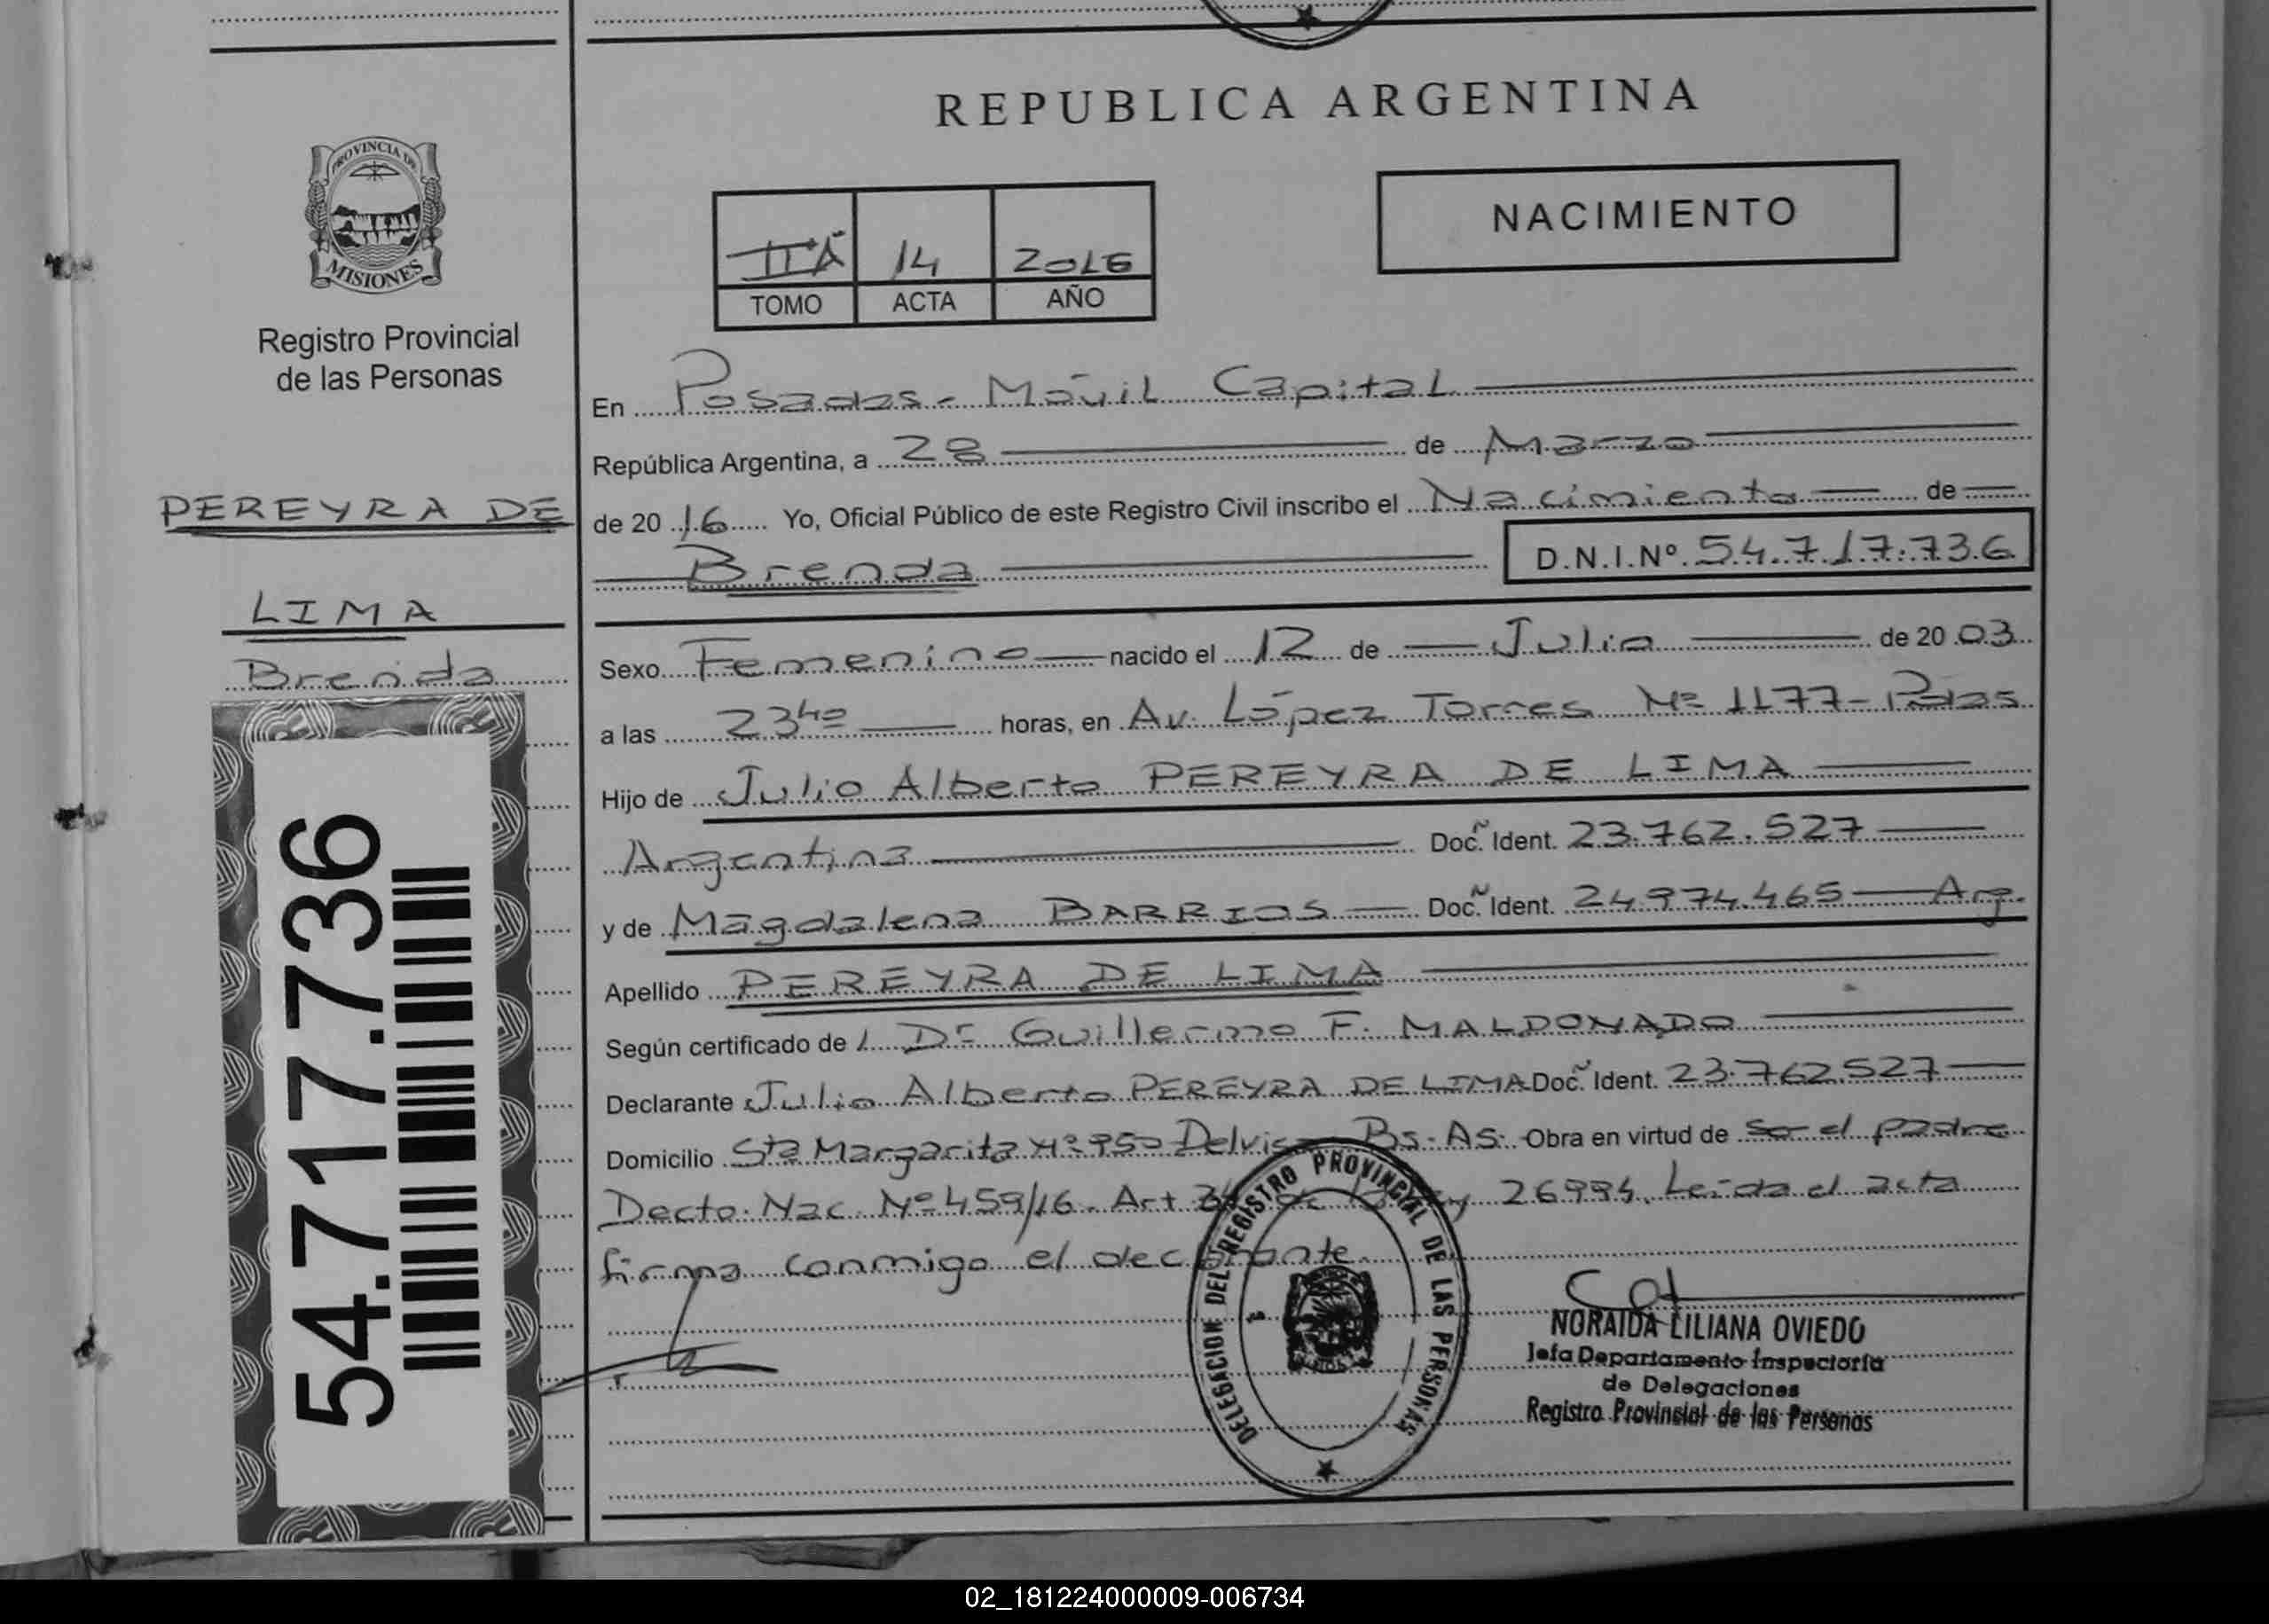 REPUBLICA ARGENTINA
PROVINCIA DE
MISIONES
Registro Provincial
de las Personas
NACIMIENTO
14 2016
TOMO ACTA AÑO
En Posadas - Móvil Capital
República Argentina, a 28 de Marzo
de 2016 Yo, Oficial Público de este Registro Civil inscribo el Nacimiento de
Brenda D.N.I.Nº 54.717.736
PEREYRA DE
LIMA
Brenda
54.717.736
Sexo Femenino nacido el 12 de Julio de 2003
a las 23 40 horas, en Av. López Torres Nº 1177 - Pdas
Hijo de Julio Alberto PEREYRA DE LIMA
Argentina Doc. Ident. 23.762.527
y de Magdalena BARRIOS Doc. Ident. 24974.465 Arg.
Apellido PEREYRA DE LIMA
Según certificado de Dr Guillermo F. MALDONADO
Declarante Julio Alberto PEREYRA DE LIMA Doc. Ident. 23.762.527
Domicilio Sta Margarita Nº 950 Delviso Bs. As. Obra en virtud de ser el padre
Decto. Nac. Nº 459/16. Art de Ley 26994. Leída el acta
firma conmigo el declarante.
DELEGACION DEL REGISTRO PROVINCIAL DE LAS PERSONAS
NORAIDA LILIANA OVIEDO
Jefa Departamento Inspectoría
de Delegaciones
Registro Provincial de las Personas
02_181224000009-006734